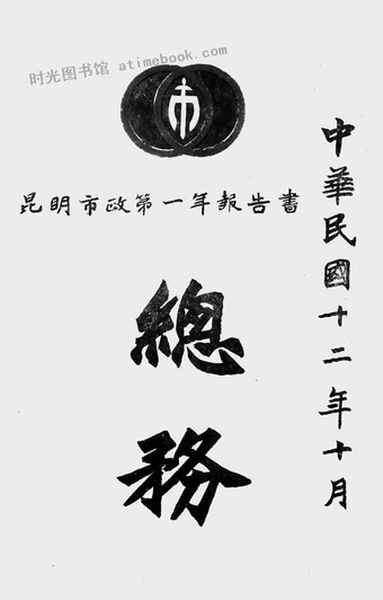 时光图书馆 atimebook.com
市
昆明市政第一年報告書
總務
中華民國十二年十月